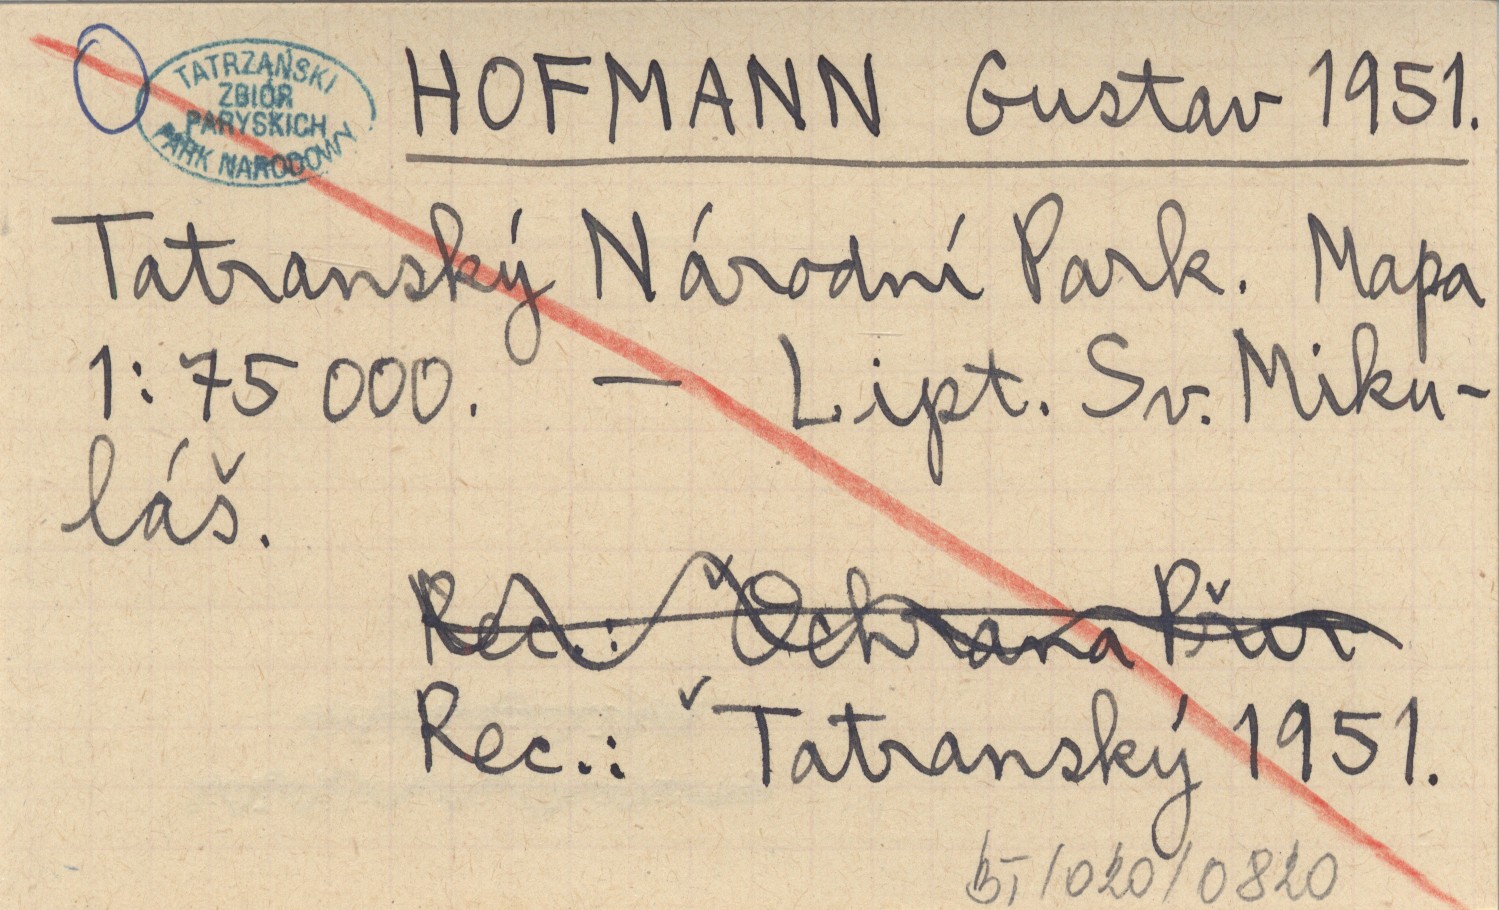 TATRZAŃSKI
ZBIÓR
PARYSKICH
PARK NARODOWY
HOFMANN Gustav 1951.
Tatranský Národní Park. Mapa
1:75 000. — Lipt. Sv. Miku-
láš.
Rec.: Ochrana Přír
Rec.: Tatranský 1951.
BT/020/0820